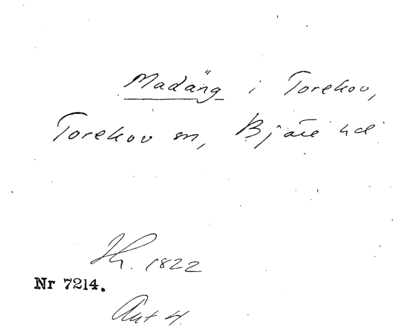 Madäng i Torekov,
Torekov sn, Bjäre hd
Nr 7214. 1822
Akt 4.